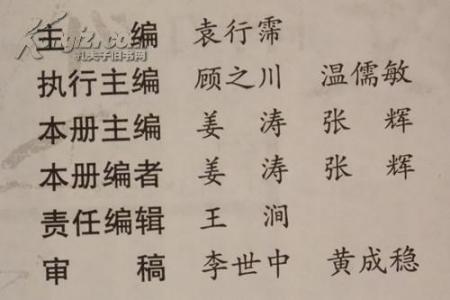 主编 袁行霈
执行主编 顾之川 温儒敏
本册主编 姜涛 张辉
本册编者 姜涛 张辉
责任编辑 王涧
审稿 李世中 黄成稳